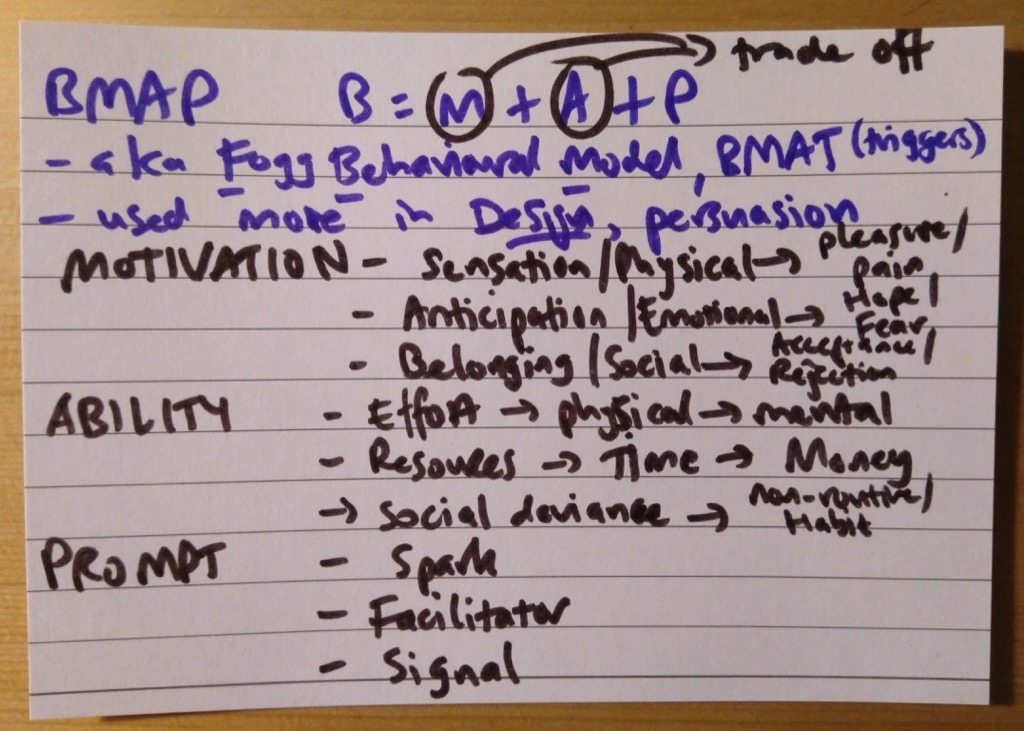 BMAP B = M + A + P → trade off
- aka Fogg Behavioural Model, BMAT (triggers)
- used more in Design, persuasion
MOTIVATION - Sensation/Physical → pleasure/
pain
- Anticipation/Emotional → Hope/
Fear
- Belonging/Social → Acceptance/
Rejection
ABILITY - Effort → physical → mental
- Resources → Time → Money
→ social deviance → non-routine/
Habit
PROMPT - Spark
- Facilitator
- Signal